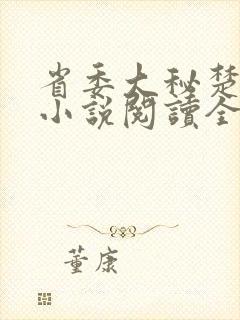 省委大秘楚
小說閱讀全
董康